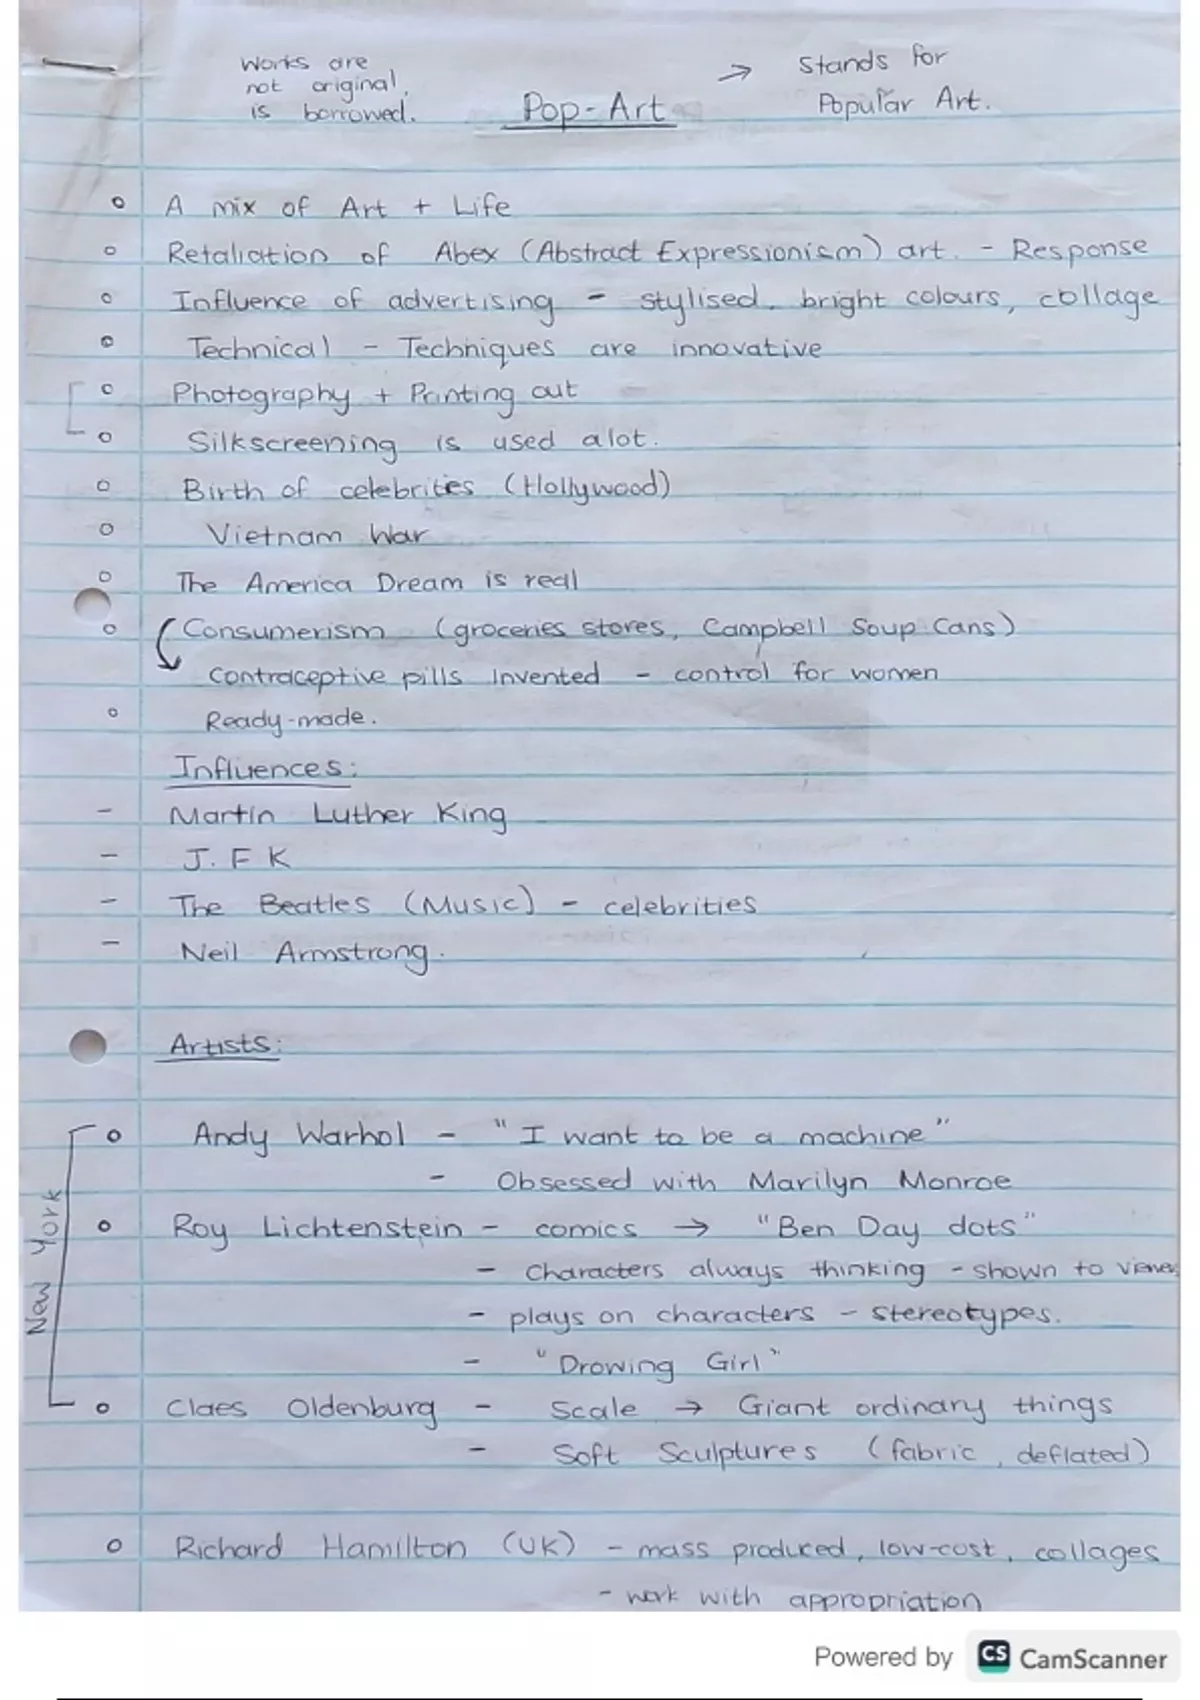 Works are
not original,
is borrowed.
Pop-Art
→ Stands for
Popular Art.
A mix of Art + Life
Retaliation of Abex (Abstract Expressionism) art. - Response
Influence of advertising - stylised, bright colours, collage
Technical - Techniques are innovative
Photography + Printing out
Silkscreening is used alot.
Birth of celebrities (Hollywood)
Vietnam War
The America Dream is real
Consumerism (groceries stores, Campbell Soup Cans)
Contraceptive pills Invented - control for women
Ready-made.
Influences:
- Martin Luther King
- J. F K
- The Beatles (Music) - celebrities
- Neil Armstrong.
Artists:
New York
Andy Warhol - "I want to be a machine"
- Obsessed with Marilyn Monroe
Roy Lichtenstein - comics → "Ben Day dots"
- Characters always thinking - shown to viewer
- plays on characters - stereotypes.
- "Drowing Girl"
Claes Oldenburg - Scale → Giant ordinary things
- Soft Sculptures (fabric, deflated)
Richard Hamilton (UK) - mass produced, low-cost, collages
- work with appropriation
Powered by CS CamScanner